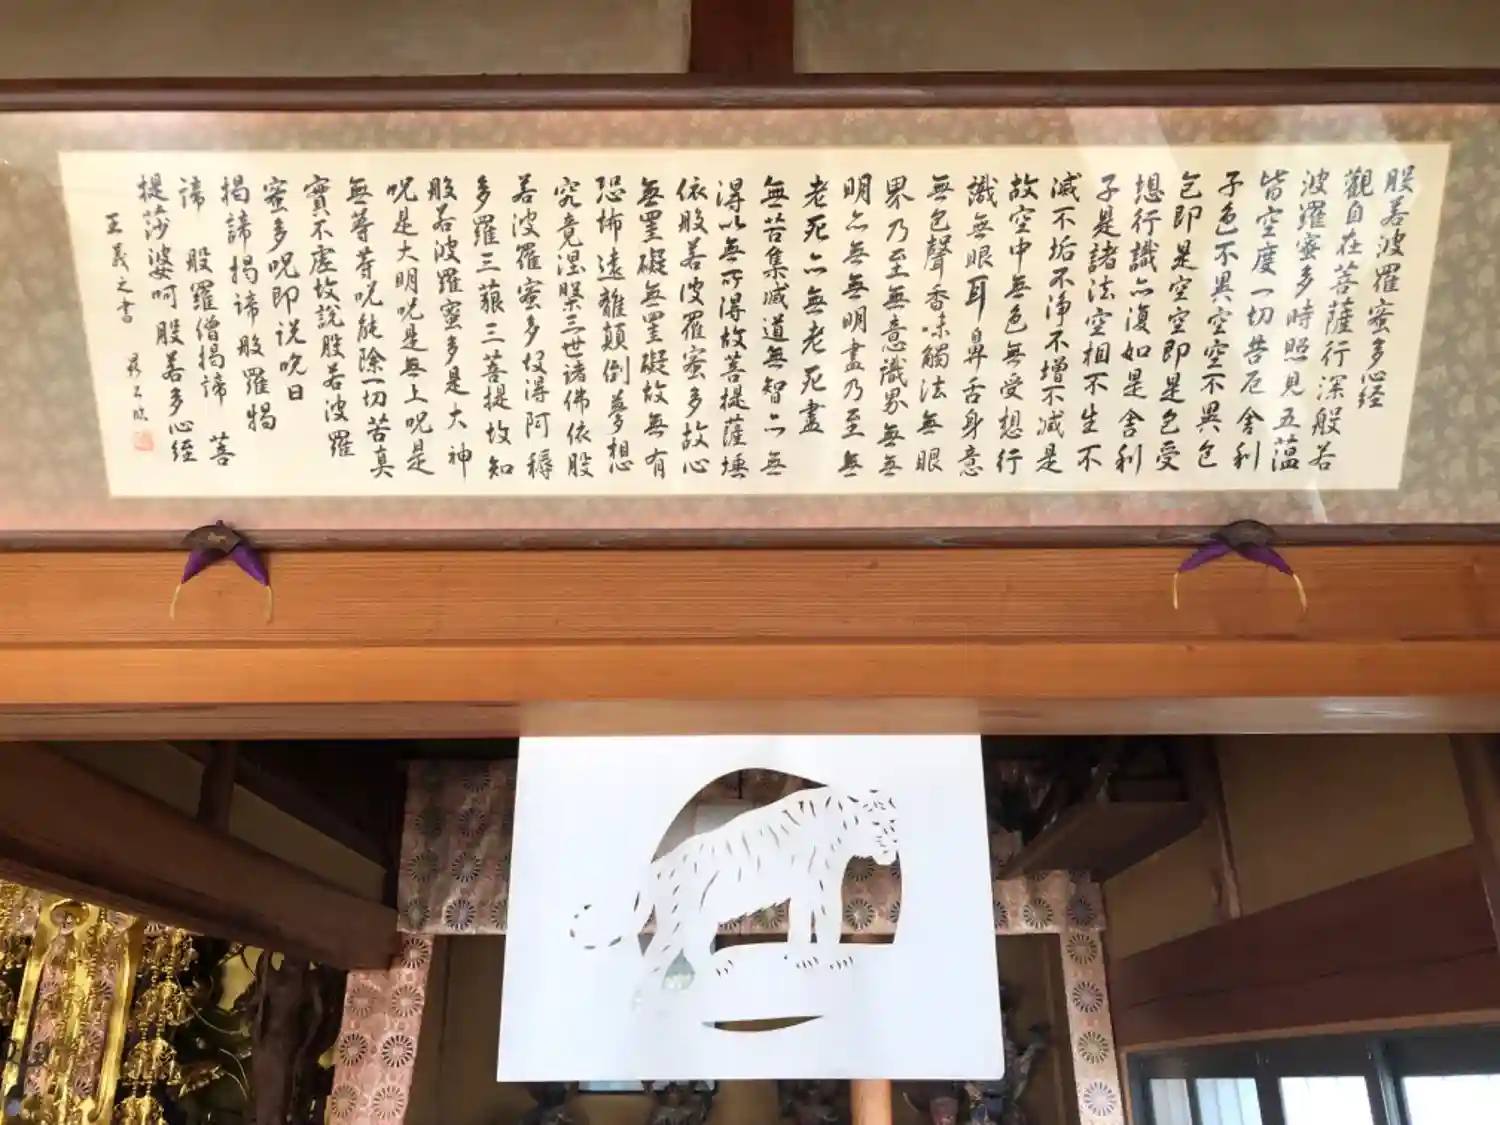 般若波羅蜜多心経
觀自在菩薩行深般若
波羅蜜多時照見五蕰
皆空度一切苦厄舍利
子色不異空空不異色
色即是空空即是色受
想行識亦復如是舍利
子是諸法空相不生不
滅不垢不浄不增不減是
故空中無色無受想行
識無眼耳鼻舌身意
無色聲香味觸法無眼
界乃至無意識界無無
明亦無無明盡乃至無
老死亦無老死盡
無苦集滅道無智亦無
得以無所得故菩提薩埵
依般若波羅蜜多故心
無罣礙無罣礙故無有
恐怖遠離顛倒夢想
究竟涅槃三世諸佛依般
若波羅蜜多故得阿耨
多羅三藐三菩提故知
般若波羅蜜多是大神
呪是大明呪是無上呪是
無等等呪能除一切苦真
實不虛故説般若波羅
蜜多呪即説呪曰
揭諦揭諦般羅揭
諦 般羅僧揭諦 菩
提莎婆呵 般若多心経
王羲之書